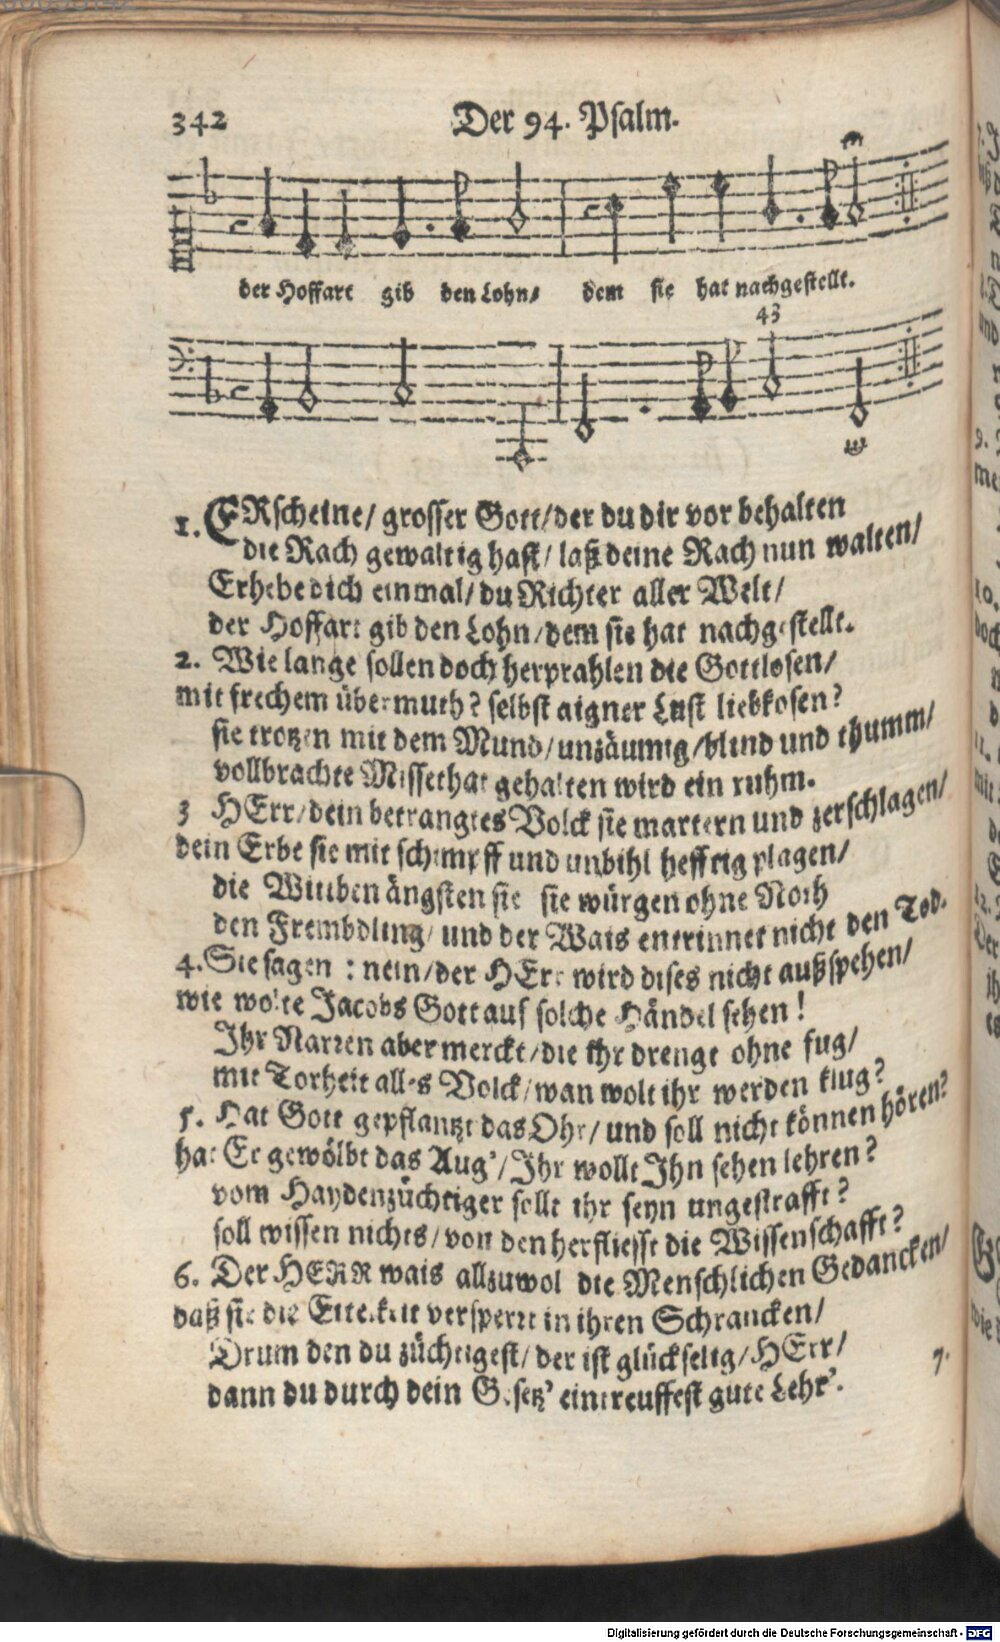 342 Der 94. Psalm.
der Hoffart gib den Lohn/ dem sie hat nachgestellt.
43
1. ERscheine/ grosser Gott/ der du dir vor behalten
die Rach gewaltig hast/ laß deine Rach nun walten/
Erhebe dich einmal/ du Richter aller Welt/
der Hoffart gib den Lohn/ dem sie hat nachgestellt.
2. Wie lange sollen doch herprahlen die Gottlosen/
mit frechem übermuth? selbst aigner Lust liebkosen?
sie trotzen mit dem Mund/ unzäumig/ blind und thumm/
vollbrachte Missethat gehalten wird ein ruhm.
3 HErr/ dein betrangtes Volck sie martern und zerschlagen/
dein Erbe sie mit schimpff und unbihl hefftig plagen/
die Wittben ängsten sie sie würgen ohne Noth
den Frembdling/ und der Wais entrinnet nicht den Tod.
4. Sie sagen : nein/ der HErr wird dises nicht außspehen/
wie wolte Jacobs Gott auf solche Händel sehen!
Ihr Narren aber merckt/ die ihr drengt ohne fug/
mit Torheit alles Volck/ wan wolt ihr werden klug?
5. Hat Gott gepflantzt das Ohr/ und soll nicht können hören?
hat Er gewölbt das Aug'/ Ihr wollt Ihn sehen lehren?
vom Haydenzüchtiger sollt ihr seyn ungestrafft?
soll wissen nichts/ von den herfliesst die Wissenschafft?
6. Der HERR wais allzuwol die Menschlichen Gedancken/
daß sie die Eitelkeit versperrt in ihren Schrancken/
Drum den du züchtigest/ der ist glückselig/ HErr/
dann du durch dein Gesetz' eintreuffest gute Lehr'.
7.
Digitalisierung gefördert durch die Deutsche Forschungsgemeinschaft - DFG